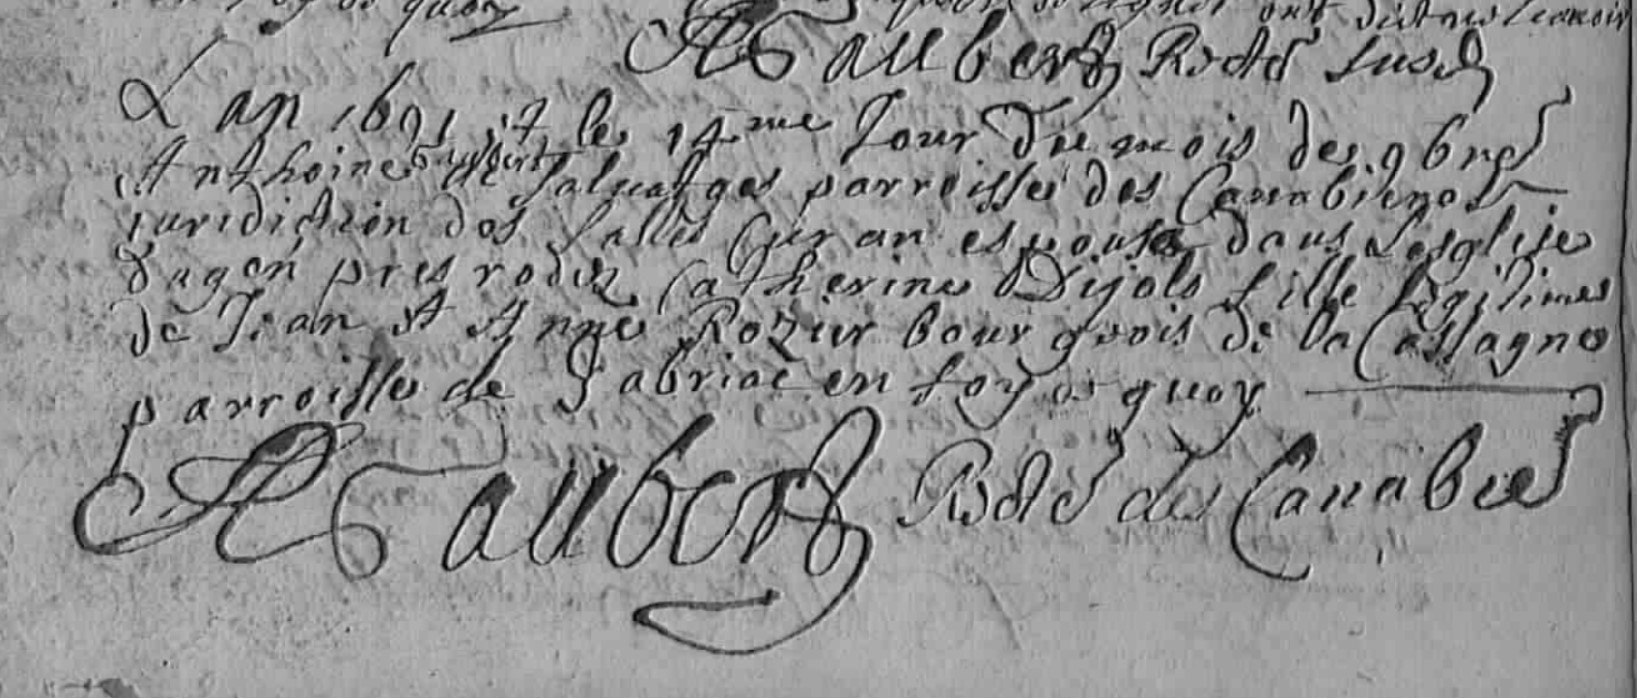 en foy de quoy
ont dict ne scavoir
Gaubert Rectr susd
L an 1691 et le 14me Jour du mois de 9bre
Anthoine Gaubert de Salvatges parroisse des Canabieres
juridiction des Salles Curan espousa dans Lesglise
Dagen pres rodez Catherine Dijols fille legitime
de Jean et Anne Rozier bourgeois de la Cassagne
parroisse de Gabriac en foy de quoy
Gaubert Rectr des Canabie